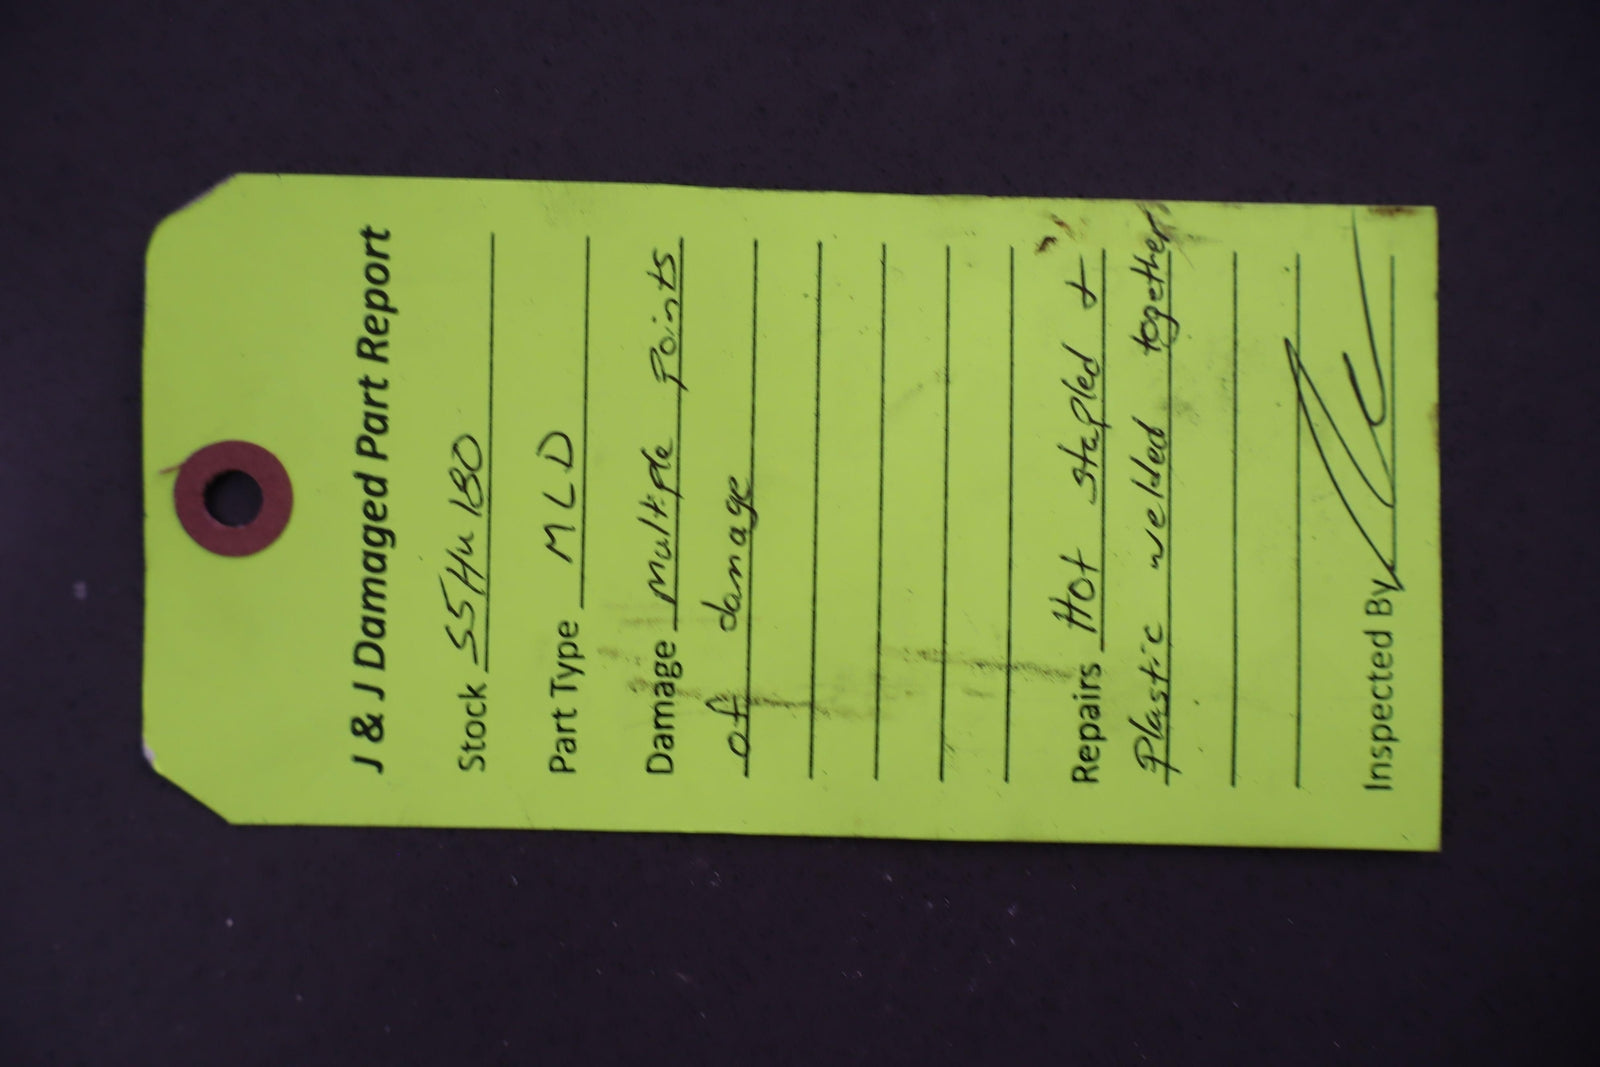 J & J Damaged Part Report
Stock 55Hu180
Part Type MLD
Damage Multiple Points
of damage
Repairs Hot stapled +
Plastic welded together
Inspected By